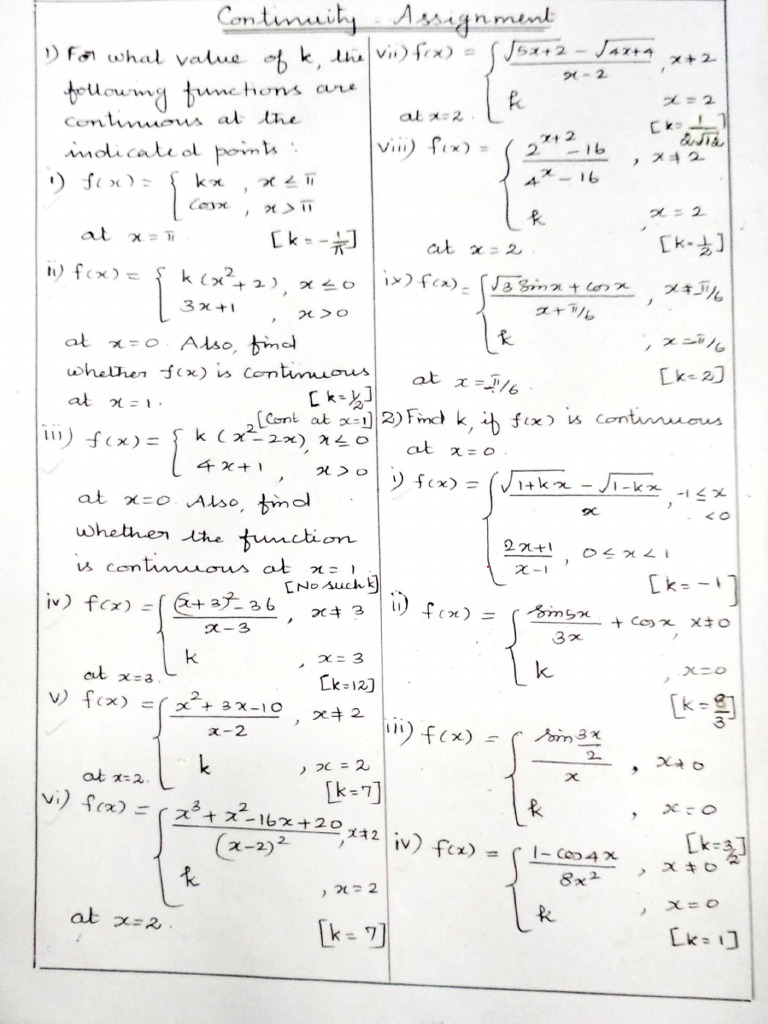 Continuity - Assignment
1) For what value of k, the
following functions are
continuous at the
indicated points:
i) f(x) = { kx , x ≤ π
cosx , x > π
at x = π [k = -1/π]
ii) f(x) = { k(x²+2), x ≤ 0
3x+1 , x > 0
at x=0. Also, find
whether f(x) is continuous
at x=1. [k=1/2]
[Cont at x=1]
iii) f(x) = { k(x²-2x), x ≤ 0
4x+1 , x > 0
at x=0. Also, find
whether the function
is continuous at x=1.
[No such k]
iv) f(x) = { (x+3)²-36 / x-3 , x ≠ 3
k , x = 3
at x=3. [k=12]
v) f(x) = { x²+3x-10 / x-2 , x ≠ 2
k , x = 2
at x=2. [k=7]
vi) f(x) = { x³+x²-16x+20 / (x-2)² , x≠2
k , x = 2
at x=2. [k=7]
vii) f(x) = { √5x+2 - √4x+4 / x-2 , x≠2
k x = 2
at x=2. [k=1/2√12]
viii) f(x) = { 2^x+2 - 16 / 4^x - 16 , x≠2
k , x = 2
at x=2. [k=1/2]
ix) f(x) = { √3 sinx + cosx / x+π/6 , x≠π/6
k , x=π/6
at x=π/6. [k=2]
2) Find k, if f(x) is continuous
at x=0.
i) f(x) = { √1+kx - √1-kx / x , -1 ≤ x < 0
2x+1 / x-1 , 0 ≤ x < 1
[k=-1]
ii) f(x) = { sin5x / 3x + cosx, x≠0
k , x=0
[k=8/3]
iii) f(x) = { sin 3x/2 / x , x≠0
k , x=0
[k=3/2]
iv) f(x) = { 1-cos4x / 8x² , x≠0
k , x=0
[k=1]